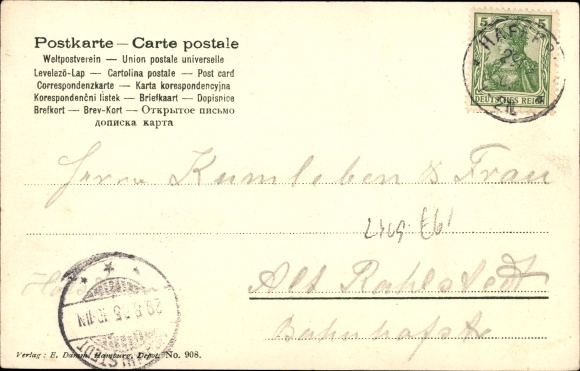 Postkarte — Carte postale
Weltpostverein — Union postale universelle
Levelező-Lap — Cartolina postale — Post card
Correspondenzkarte — Karta korespondencyjna
Korespondenční listek — Briefkaart — Dopisnice
Brefkort — Brev-Kort — Открытое письмо
дописка карта
5 5
DEUTSCHES REICH
Herrn Kumleben & Frau
Alt Rahlstedt
Bahnhofstr
Verlag : E. Damm, Hamburg, Depot. No. 908.